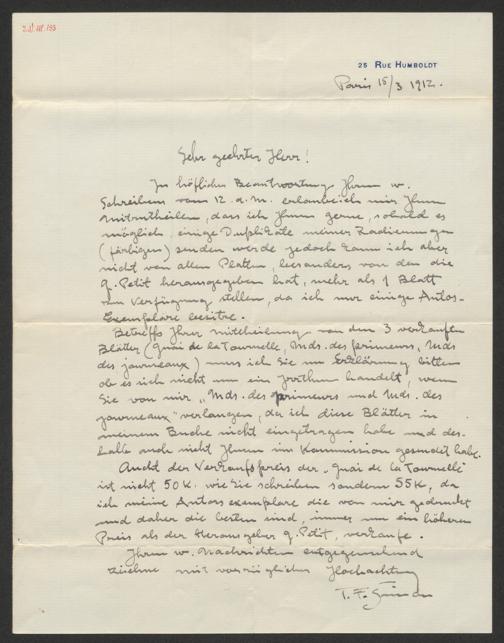 25 RUE HUMBOLDT
Paris 15/3 1912.
Sehr geehrter Herr!
In höflicher Beantwortung Ihrem w.
Schreibens vom 12. d. M. erlaube ich mir Ihnen
mitzutheilen, dass ich Ihnen gerne, sobald es
möglich, einige Duplikate meiner Radierungen
(färbigen) senden werde jedoch kann ich aber
nicht von allen Platten, besonders von den die
G. Petit herausgegeben hat, mehr als 1 Blatt
zum Verfügung stellen, da ich nur einige Autos-
Exemplare besitze.
Betreffs Ihrer Mittheilung von den 3 verkauften
Blätter (Quai de la Tournelle, Mds. des primeurs, Mds
des journeaux) muss ich Sie um Erklärung bitten
ob es sich nicht um ein Irrthum handelt, wenn
Sie von mir „Mds. des primeurs und Mds. des
journeaux" verlangen, da ich diese Blätter in
meinem Buche nicht eingetragen habe und des-
halb auch nicht Ihnen im Kommission gesendet habe.
Aucht der Verkaufspreis der „Quai de la Tournelle"
ist nicht 50 K. wie Sie schreiben sondern 55 K, da
ich meine Autors exemplare die von mir gedruckt
und daher die besten sind, immer um ein höheren
Preis als der Herausgeber G. Petit, verkaufe.
Ihren w. Nachrichten entgegensehend
zeichne mit vorzüglicher Hochachtung
T. F. Šimon